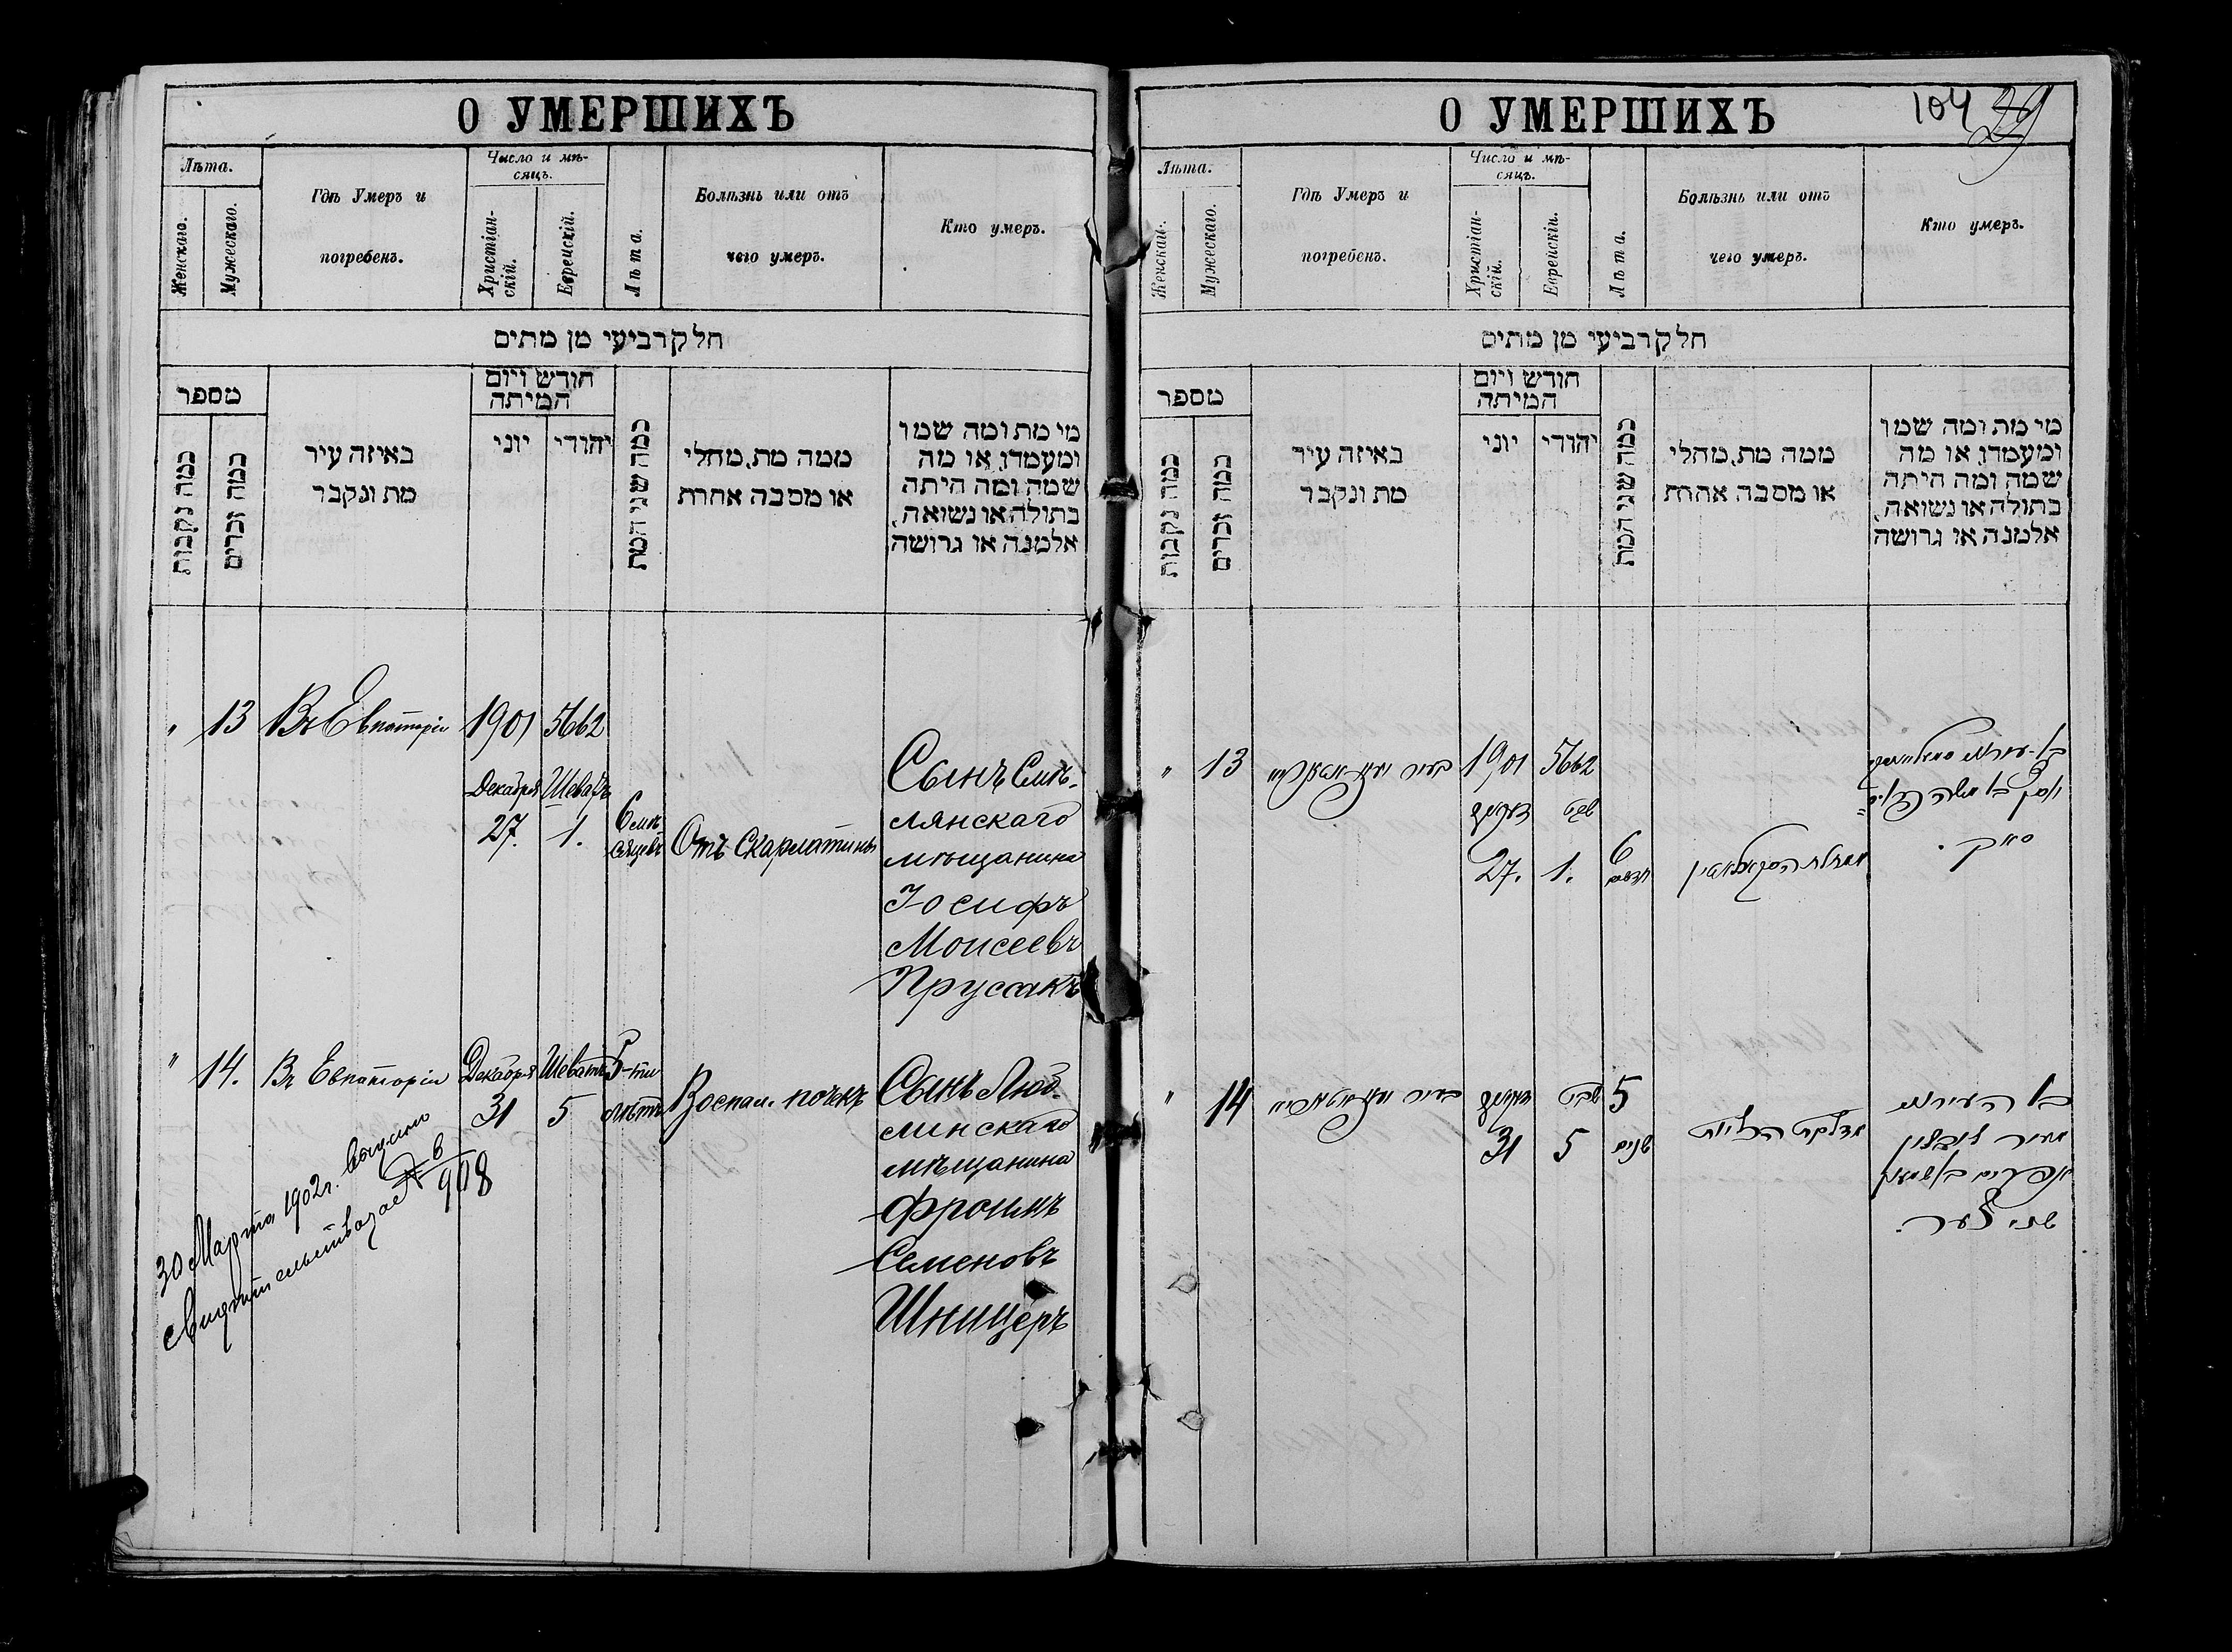 О УМЕРШИХЪ
Лѣта.
Женскаго.
Мужескаго.
Гдѣ Умеръ и
погребенъ.
Число и мѣ-
сяцъ.
Христіан-
скій.
Еврейскій.
Лѣта.
Болѣзнь или отъ
чего умеръ.
Кто умеръ.
חלק רביעי מן מתים
מספר
כמה נקבות
כמה זכרים
באיזה עיר
מת ונקבר
חודש ויום
המיתה
יוני
יהודי
כמה שני המת
ממה מת, מחלי
או מסבה אחרת
מי מת ומה שמו
ומעמדו, או מה
שמה ומה היתה
בתולה או נשואה,
אלמנה או גרושה
" 13 Въ Евпаторіи 1901 5662
Декабря Шеватъ
27. 1.
6 мѣ-
сяцевъ
Отъ Скарлатины
Сынъ Смѣ-
лянскаго
мѣщанина
Іосифъ
Моисеевъ
Прусакъ
" 14. Въ Евпаторіи Декабря Шеватъ 5-ти
31 5 лѣтъ
Воспал. почекъ
Сынъ Люб-
линскаго
мѣщанина
Фроимъ
Семеновъ
Шницеръ
30 Марта 1902 г.
Свидѣтельство за № 908
О УМЕРШИХЪ
104 29
Лѣта.
Женскаго.
Мужескаго.
Гдѣ Умеръ и
погребенъ.
Число и мѣ-
сяцъ.
Христіан-
скій.
Еврейскій.
Лѣта.
Болѣзнь или отъ
чего умеръ.
Кто умеръ.
חלק רביעי מן מתים
מספר
כמה נקבות
כמה זכרים
באיזה עיר
מת ונקבר
חודש ויום
המיתה
יוני
יהודי
כמה שני המת
ממה מת, מחלי
או מסבה אחרת
מי מת ומה שמו
ומעמדו, או מה
שמה ומה היתה
בתולה או נשואה,
אלמנה או גרושה
" 13 בעיר 1901 5662
שבט
27. 1.
6
חדשים
יוסף בן משה
" 14 בעיר שבט 5
31 5 שנים
מדלקת הכליות
בן העירוני
מעיר לובלין
אפרים בן שמעון
שניצער.